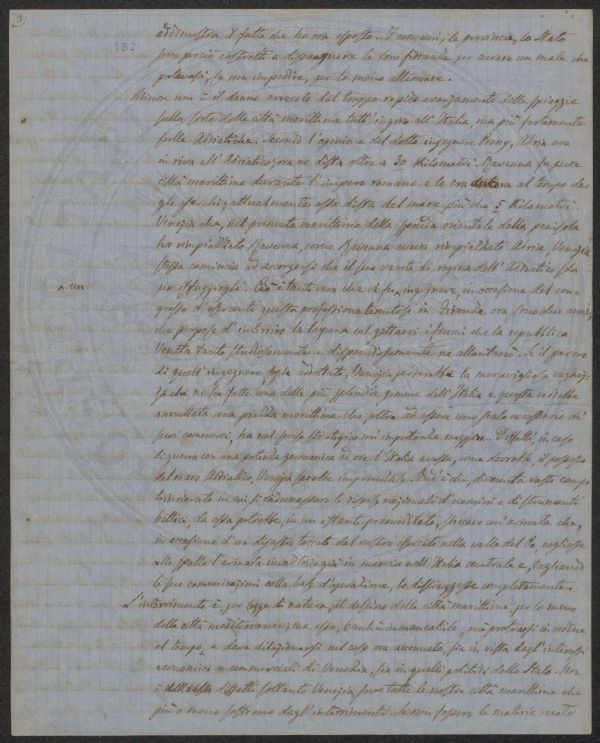 3)
152
addimostra il fatto che ho ora esposto. I comuni, le provincie, lo Stato
sono perciò costretti a dispaagnere le loro finanze per curare un male che
potevasi, se non impedire, per lo meno attenuare.
Minor non è il danno arrecato dal troppo rapido avanzamento delle spiaggie
sulla sorte delle città marittime tutt'ingiro all'Italia, ma più fortemente
sulle Adriatiche. Secondo l'opinione del dotto ingegnere Prony, Adria era
in riva all'Adriatico; ora ne dista oltre a 30 kilometri. Ravenna fu pure
città marittima durante l'impero romano e lo era ancora al tempo de-
gli Esarchi; attualmente essa dista dal mare più che 5 kilometri.
Venezia che, nel primato marittimo della sponda orientale della penisola
ha rimpiazzato Ravenna, come Ravenna aveva rimpiazzato Adria, Venezia
stessa comincia ad accorgersi che il suo vanto di regina dell'Adriatico sta
per isfuggirgli. Ciò è tanto vero che vi fu ingegnere, in occasione del con-
un
gresso d'esercenti questa professione tenutosi in Firenze ora sono due anni,
che propose d'interrire la laguna col gettarvi i fiumi che la repubblica
Veneta tanto studiosamente e dispendiosamente ne allontanò. Se il parere
di quell'ingegnere fosse adottato, Venezia perderebbe la meravigliosa vaghez-
za che ne ha fatto una delle più splendide gemme dell'Italia e questa vedrebbe
annullata una piazza marittima che, oltre ad essere uno scalo necessario de'
suoi commerci, ha nel senso strategico un'importanza maggiore. Diffatti, in caso
di guerra con una potenza germanica ed ove l'Italia avesse, come dovrebbe, il possesso
del mare Adriatico, Venezia sarebbe imprendibile. Più è che, divenuta vasto campo
trincerato in cui si radunassero le risorse nazionali d'uomini e di strumenti
bellici, da essa potrebbe, in un istante premeditato, sboccare un'armata che,
in occasione d'un disastro toccato dal nostro esercito nella valle del Po, cogliesse
alle spalle l'armata invaditrice già in marcia nell'Italia centrale e, tagliando
le sue comunicazioni colla base d'operazione, la distruggesse completamente.
L'interrimento è, per legge di natura, il destino delle città marittime, per lo meno
delle città mediterranee; ma esso, benchè immancabile, può protrarsi in ordine
al tempo, e deve dilazionarsi nel caso ora accennato, sia in vista degli interessi
economici e commerciali di Venezia, sia in quelli politici dello Stato. Non
è diffatti soltanto Venezia, sono tutte le nostre città marittime che
più o meno soffrono degl'interrimenti. Se non fossero le materie recate